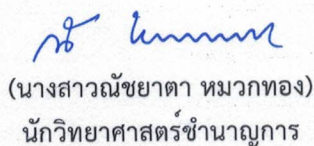 (นางสาวณัชยาตา หมวกทอง)
นักวิทยาศาสตร์ชำนาญการ